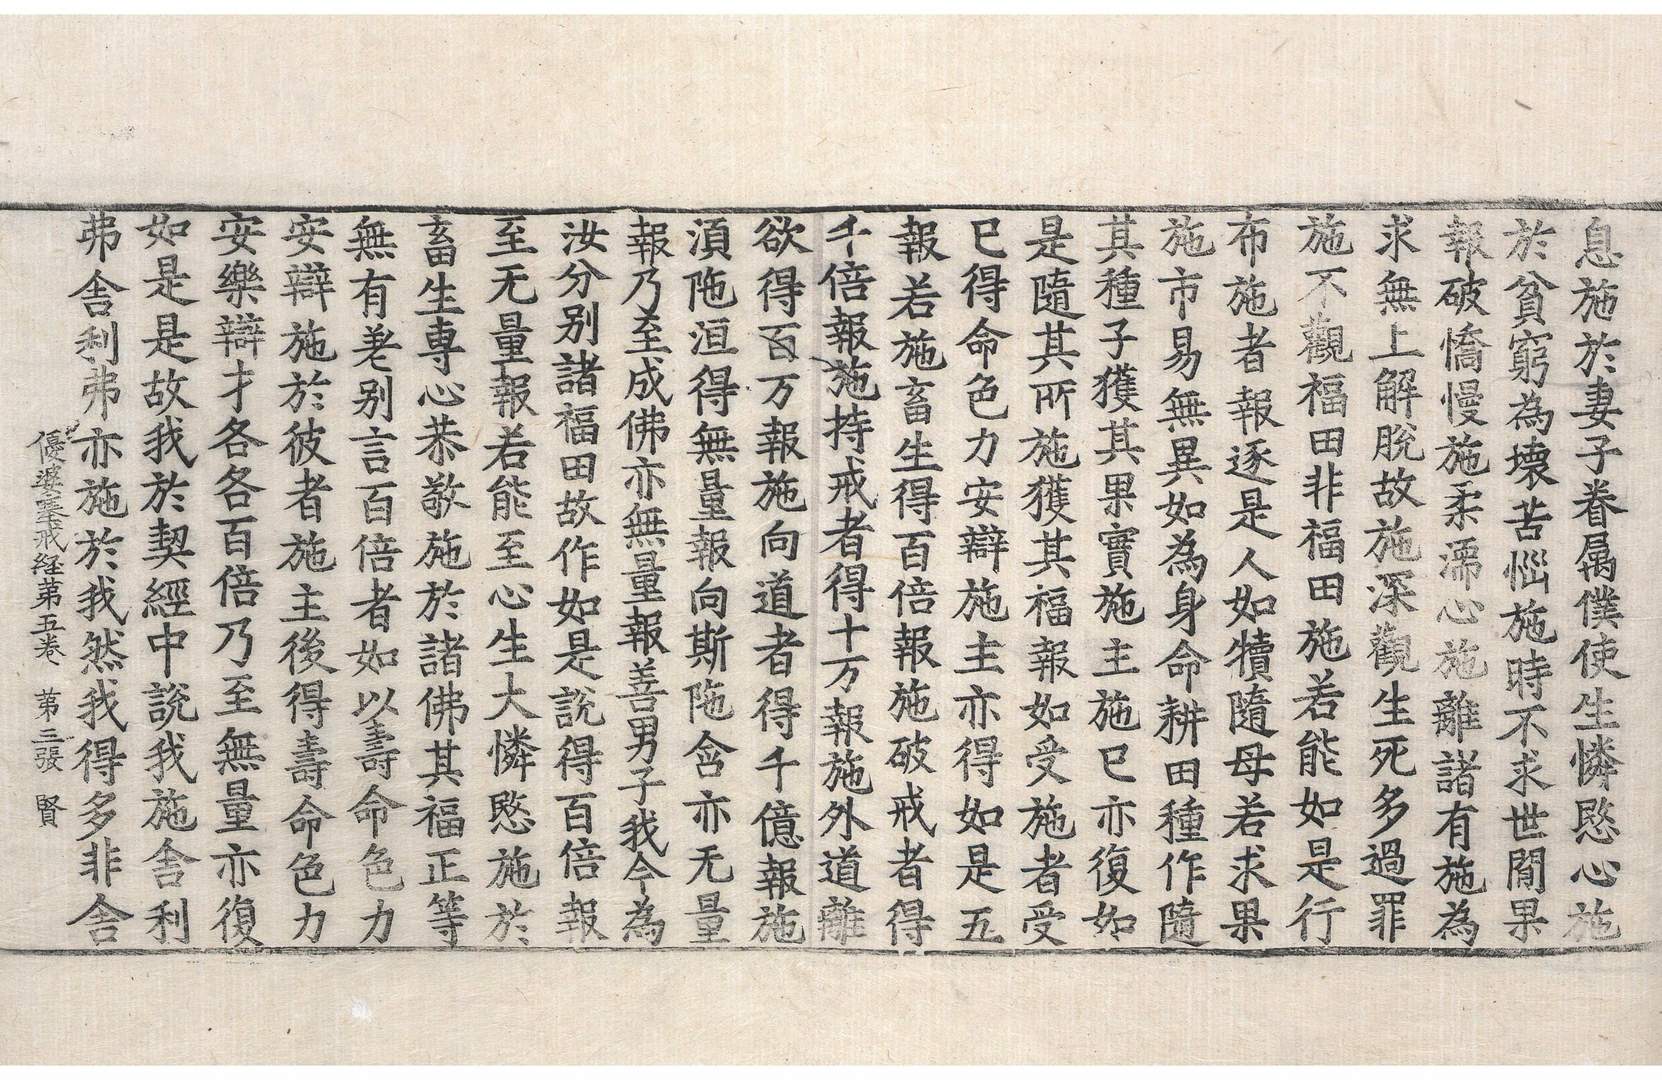 息施於妻子眷属僕使生憐愍心施
於貧窮為壞苦惱施時不求世閒果
報破憍慢施柔濡心施離諸有施為
求無上解脫故施深觀生死多過罪
施不觀福田非福田施若能如是行
布施者報逐是人如犢隨母若求果
施市易無異如為身命耕田種作隨
其種子獲其果實施主施已亦復如
是隨其所施獲其福報如受施者受
已得命色力安辯施主亦得如是五
報若施畜生得百倍報施破戒者得
千倍報施持戒者得十万報施外道離
欲得百万報施向道者得千億報施
湏陁洹得無量報向斯陁含亦无量
報乃至成佛亦無量報善男子我今為
汝分別諸福田故作如是說得百倍報
至无量報若能至心生大憐愍施於
畜生專心恭敬施於諸佛其福正等
無有差別言百倍者如以壽命色力
安辯施於彼者施主後得壽命色力
安樂辯才各各百倍乃至無量亦復
如是是故我於契經中說我施舍利
弗舍利弗亦施於我然我得多非舍
優婆塞戒経苐五卷 苐三張 賢